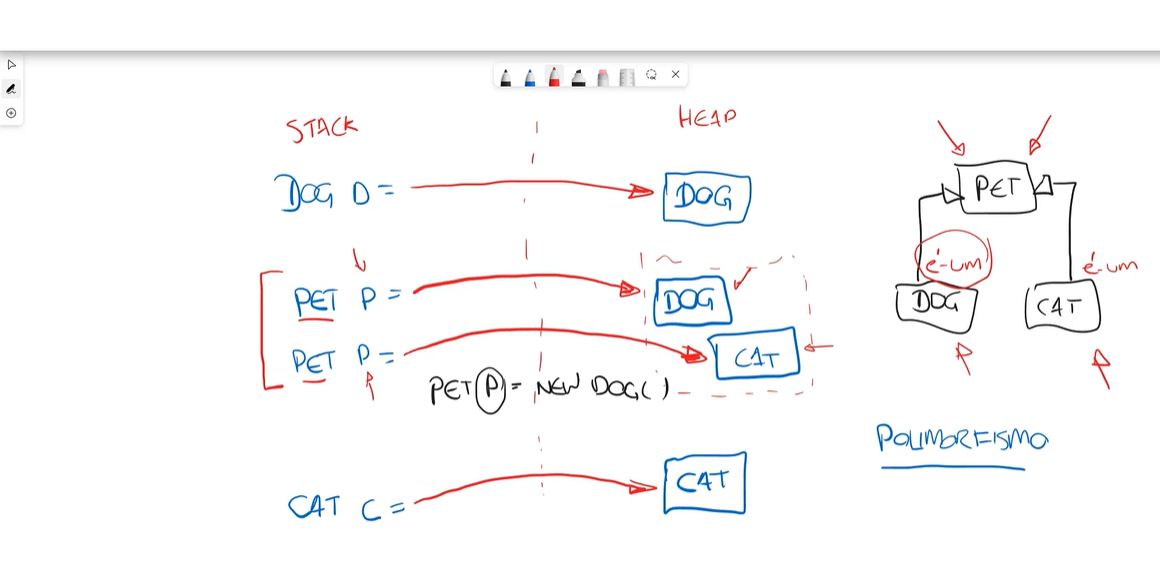 STACK
HEAP
DOG D =
DOG
PET P =
DOG
PET P =
CAT
PET P = NEW DOG()
CAT C =
CAT
PET
é-um
é-um
DOG
CAT
POLIMORFISMO